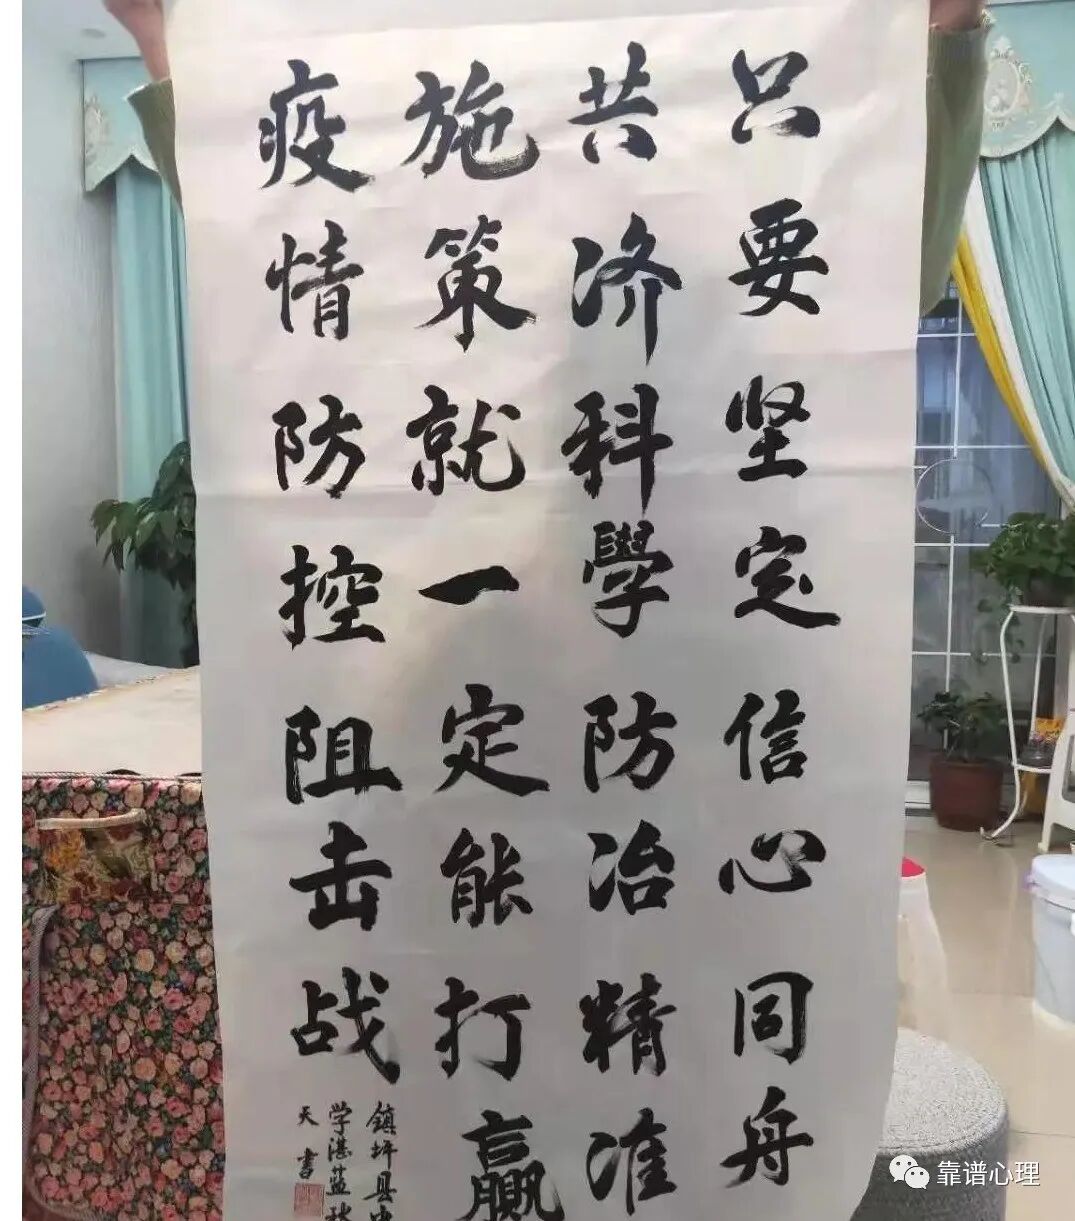 只要坚定信心同舟
共济科學防冶精准
施策就一定能打赢
疫情防控阻击战
镇坪县中
学湛蓝秋
天书
靠谱心理